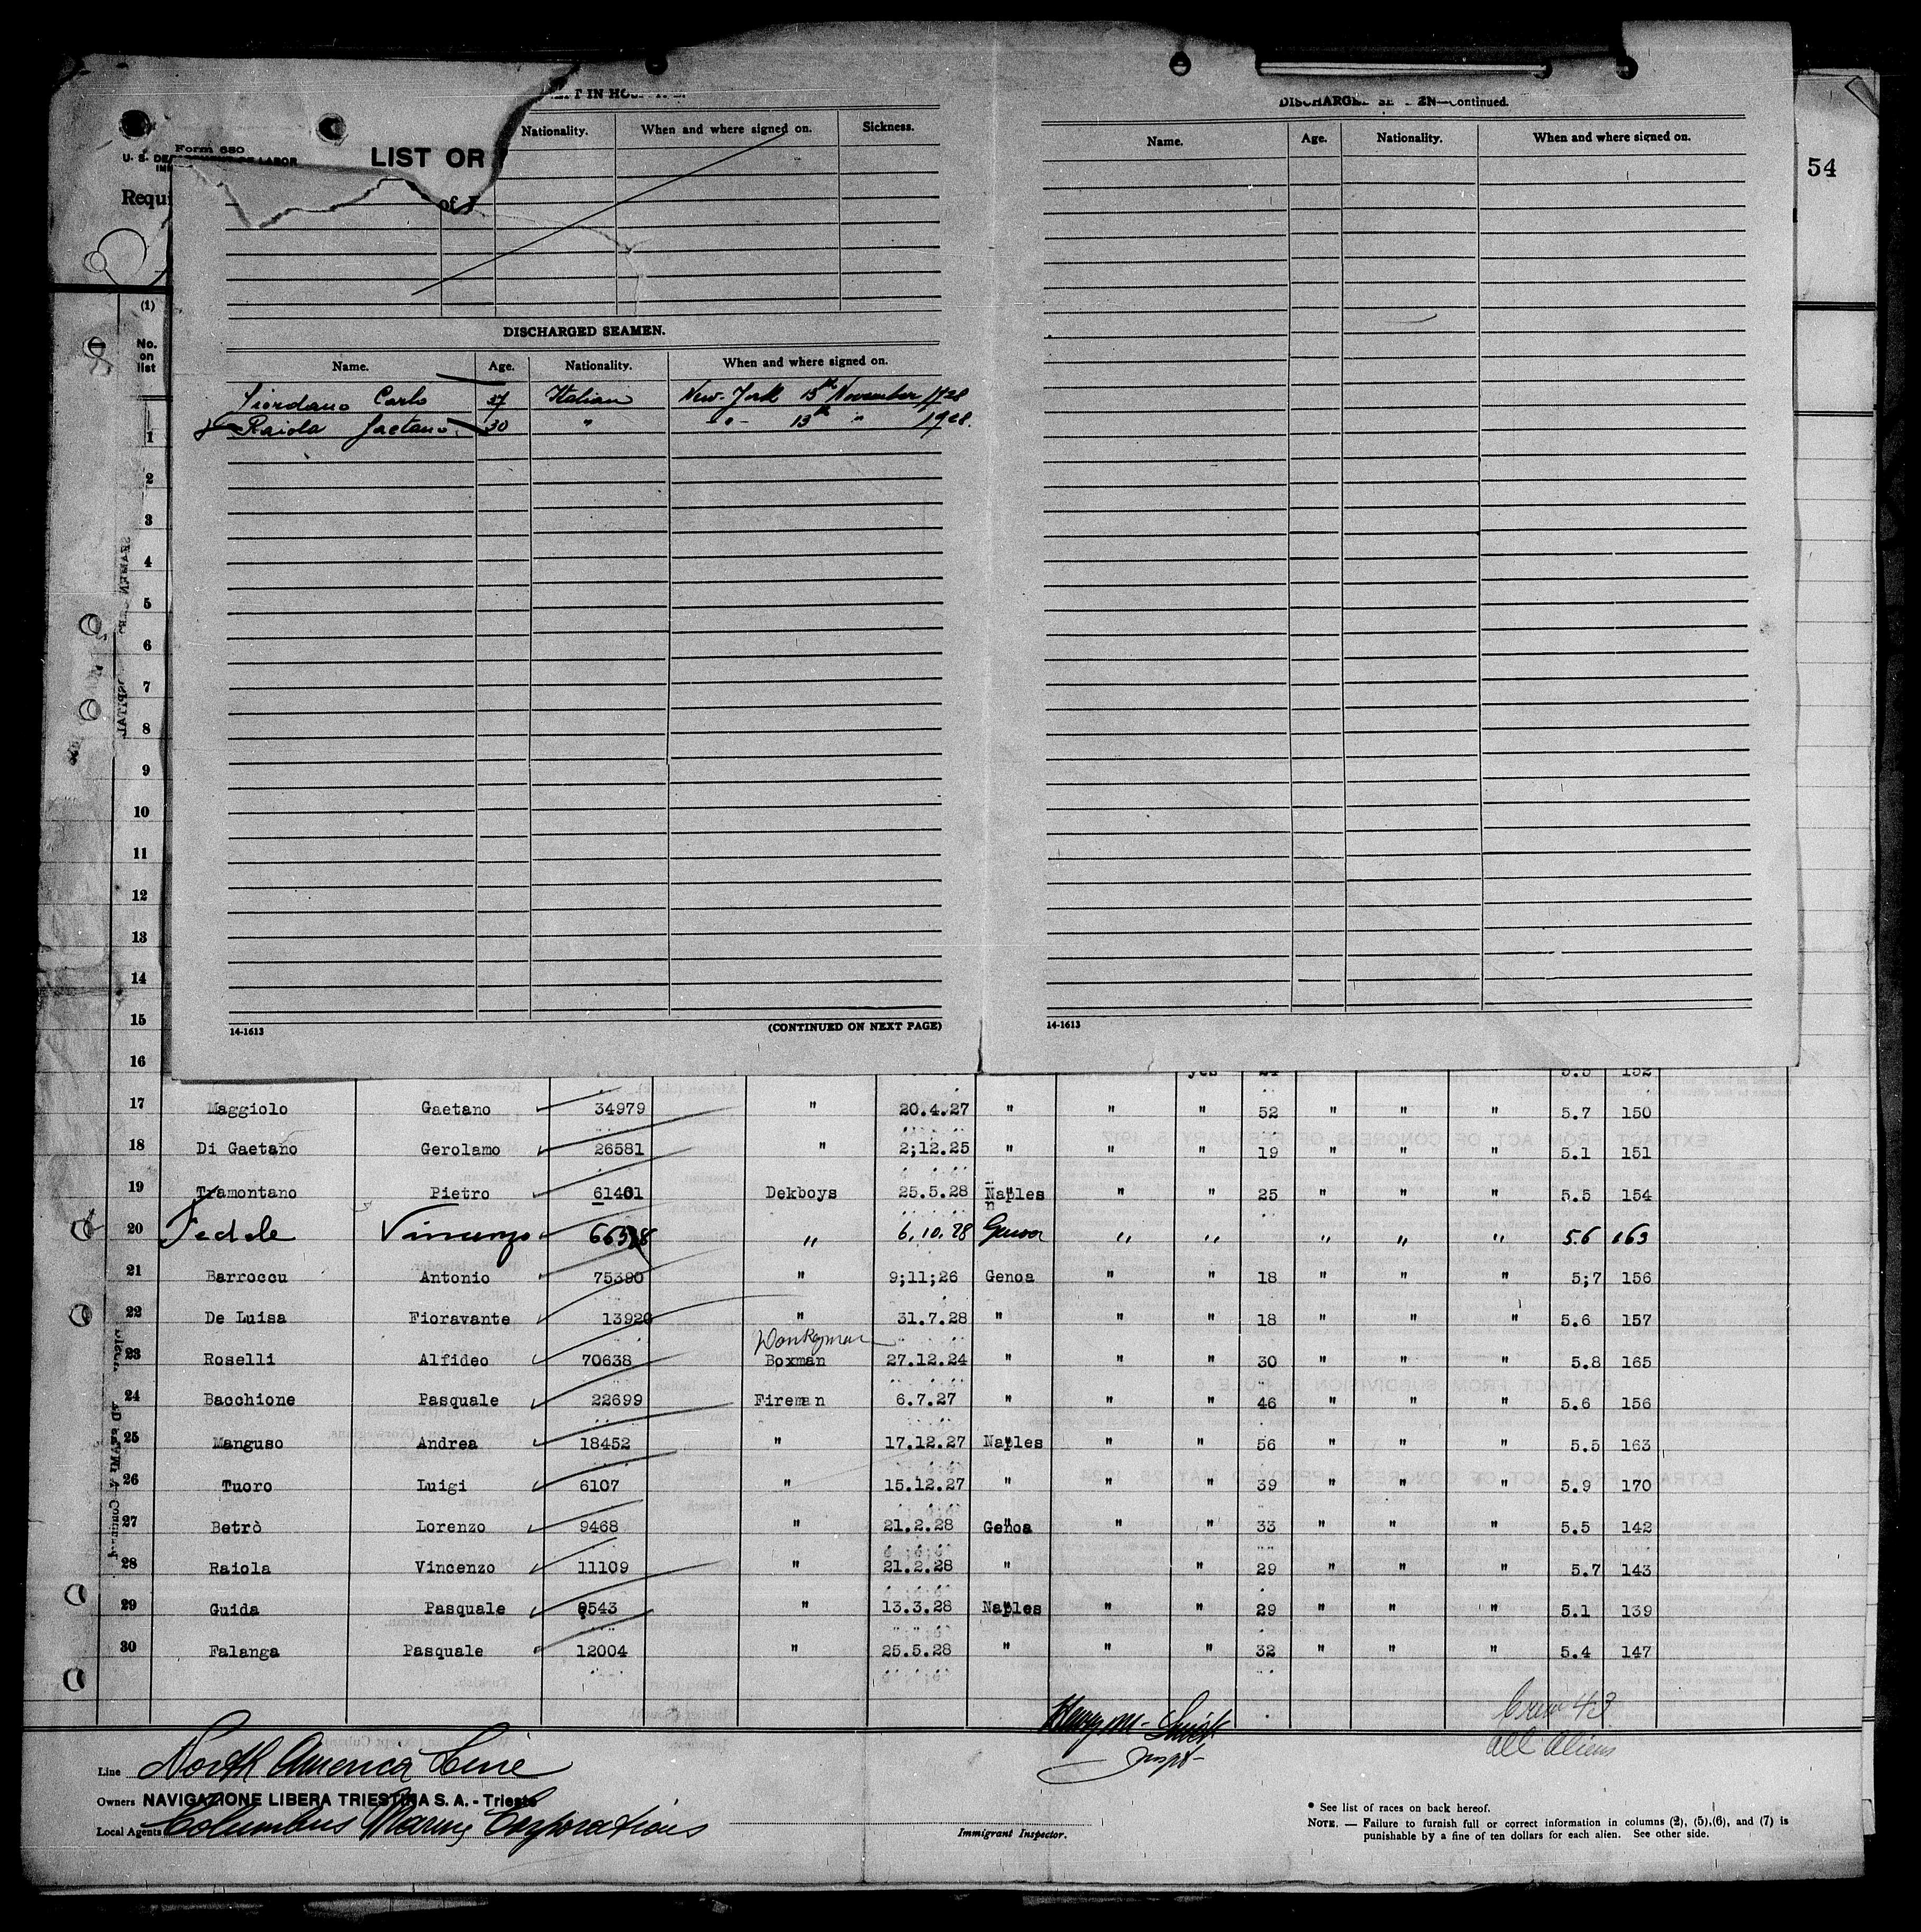 54
U. S. DE LABOR
Form 680
LIST OR
Requi
of
T IN HO
Nationality. When and where signed on. Sickness.
DISCHARGED SEAMEN.
Name. Age. Nationality. When and where signed on.
Giordano Carlo 37 Italian New-York 13th November 1928
Raiola Gaetano. 30 " - " - 13th " 1928.
14-1613 (CONTINUED ON NEXT PAGE)
DISCHARGED SE EN—Continued.
Name. Age. Nationality. When and where signed on.
14-1613
(1)
No. on list
1
2
3
4
5
6
7
8
9
10
11
12
13
14
15
16 yes 24 5.5 152
17 Maggiolo Gaetano 34979 " 20.4.27 " " " 52 " " " 5.7 150
18 Di Gaetano Gerolamo 26581 " 2;12.25 " " " 19 " " " 5.1 151
19 Tramontano Pietro 61401 Dekboys 25.5.28 Naples " " 25 " " " 5.5 154
20 Fedele Vincenzo " 6.10.28 Genoa " " " " " 5.6 163
21 Barroccu Antonio 75390 " 9;11;26 Genoa " " 18 " " " 5;7 156
22 De Luisa Fioravante 13920 " 31.7.28 " " " 18 " " " 5.6 157
Donkeyman
23 Roselli Alfideo 70638 Boxman 27.12.24 " " " 30 " " " 5.8 165
24 Bacchione Pasquale 22699 Fireman 6.7.27 " " " 46 " " " 5.6 156
25 Manguso Andrea 18452 " 17.12.27 Naples " " 56 " " " 5.5 163
26 Tuoro Luigi 6107 " 15.12.27 " " " 39 " " " 5.9 170
27 Betrò Lorenzo 9468 " 21.2.28 Genoa " " 33 " " " 5.5 142
28 Raiola Vincenzo 11109 " 21.2.28 " " 29 " " " 5.7 143
29 Guida Pasquale 9543 " 13.3.28 Naples " " 29 " " " 5.1 139
30 Falanga Pasquale 12004 " 25.5.28 " " " 32 " " " 5.4 147
Crew 43
all aliens
Inspt-
Line North America Line
Owners NAVIGAZIONE LIBERA TRIESTINA S. A. - Trieste
Local Agents Columbus Marine Corporations
Immigrant Inspector.
* See list of races on back hereof.
NOTE. — Failure to furnish full or correct information in columns (2), (5),(6), and (7) is
punishable by a fine of ten dollars for each alien. See other side.